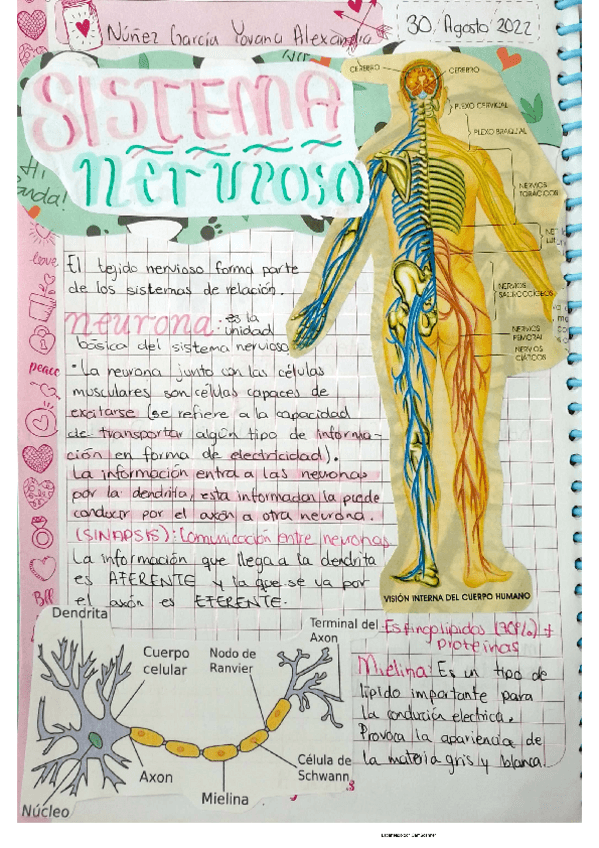 Núñez García Yovana Alexandra
30 Agosto 2022
SISTEMA
nervioso
CEREBRO
CEREBRO
PLEXO CERVICAL
PLEXO BRAQUIAL
NERVIOS
TORÁCICOS
NERVIOS
SACROCCÍGEOS
NERVIOS
FEMORAL
NERVIOS
CIÁTICOS
VISIÓN INTERNA DEL CUERPO HUMANO
love
peace
El tejido nervioso forma parte
de los sistemas de relación.
neurona: es la
unidad
básica del sistema nervioso
• La neurona junto con las células
musculares son células capaces de
excitarse (se refiere a la capacidad
de transportar algún tipo de informa-
ción en forma de electricidad).
La información entra a las neuronas
por la dendrita, esta informacion la puede
conducir por el axón a otra neurona.
(SINAPSIS): Comunicación entre neuronas
La información que llega a la dendrita
es AFERENTE y la que se va por
el axón es EFERENTE.
Dendrita
Cuerpo
celular
Nodo de
Ranvier
Terminal del
Axon
Célula de
Schwann
Axon
Mielina
Núcleo
Esfingolípidos (70%) +
Proteínas
Mielina: Es un tipo de
lípido importante para
la conducción electrica.
Provoca la apariencia de
la materia gris y blanca.